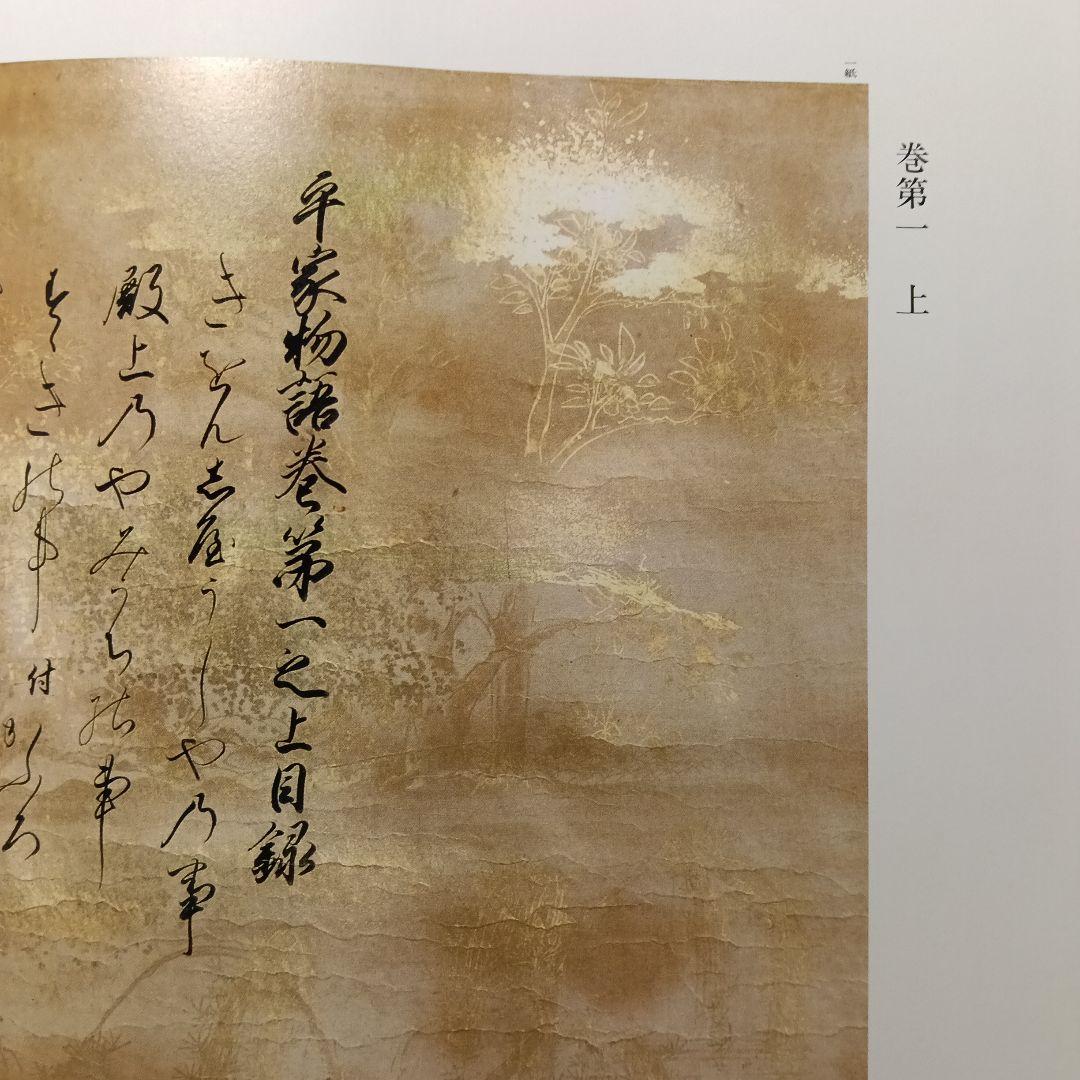 巻第一 上
一紙
平家物語巻第一之上目録
きをん志屋うしや乃事
殿上乃やみうち能事
すゝき能事 付